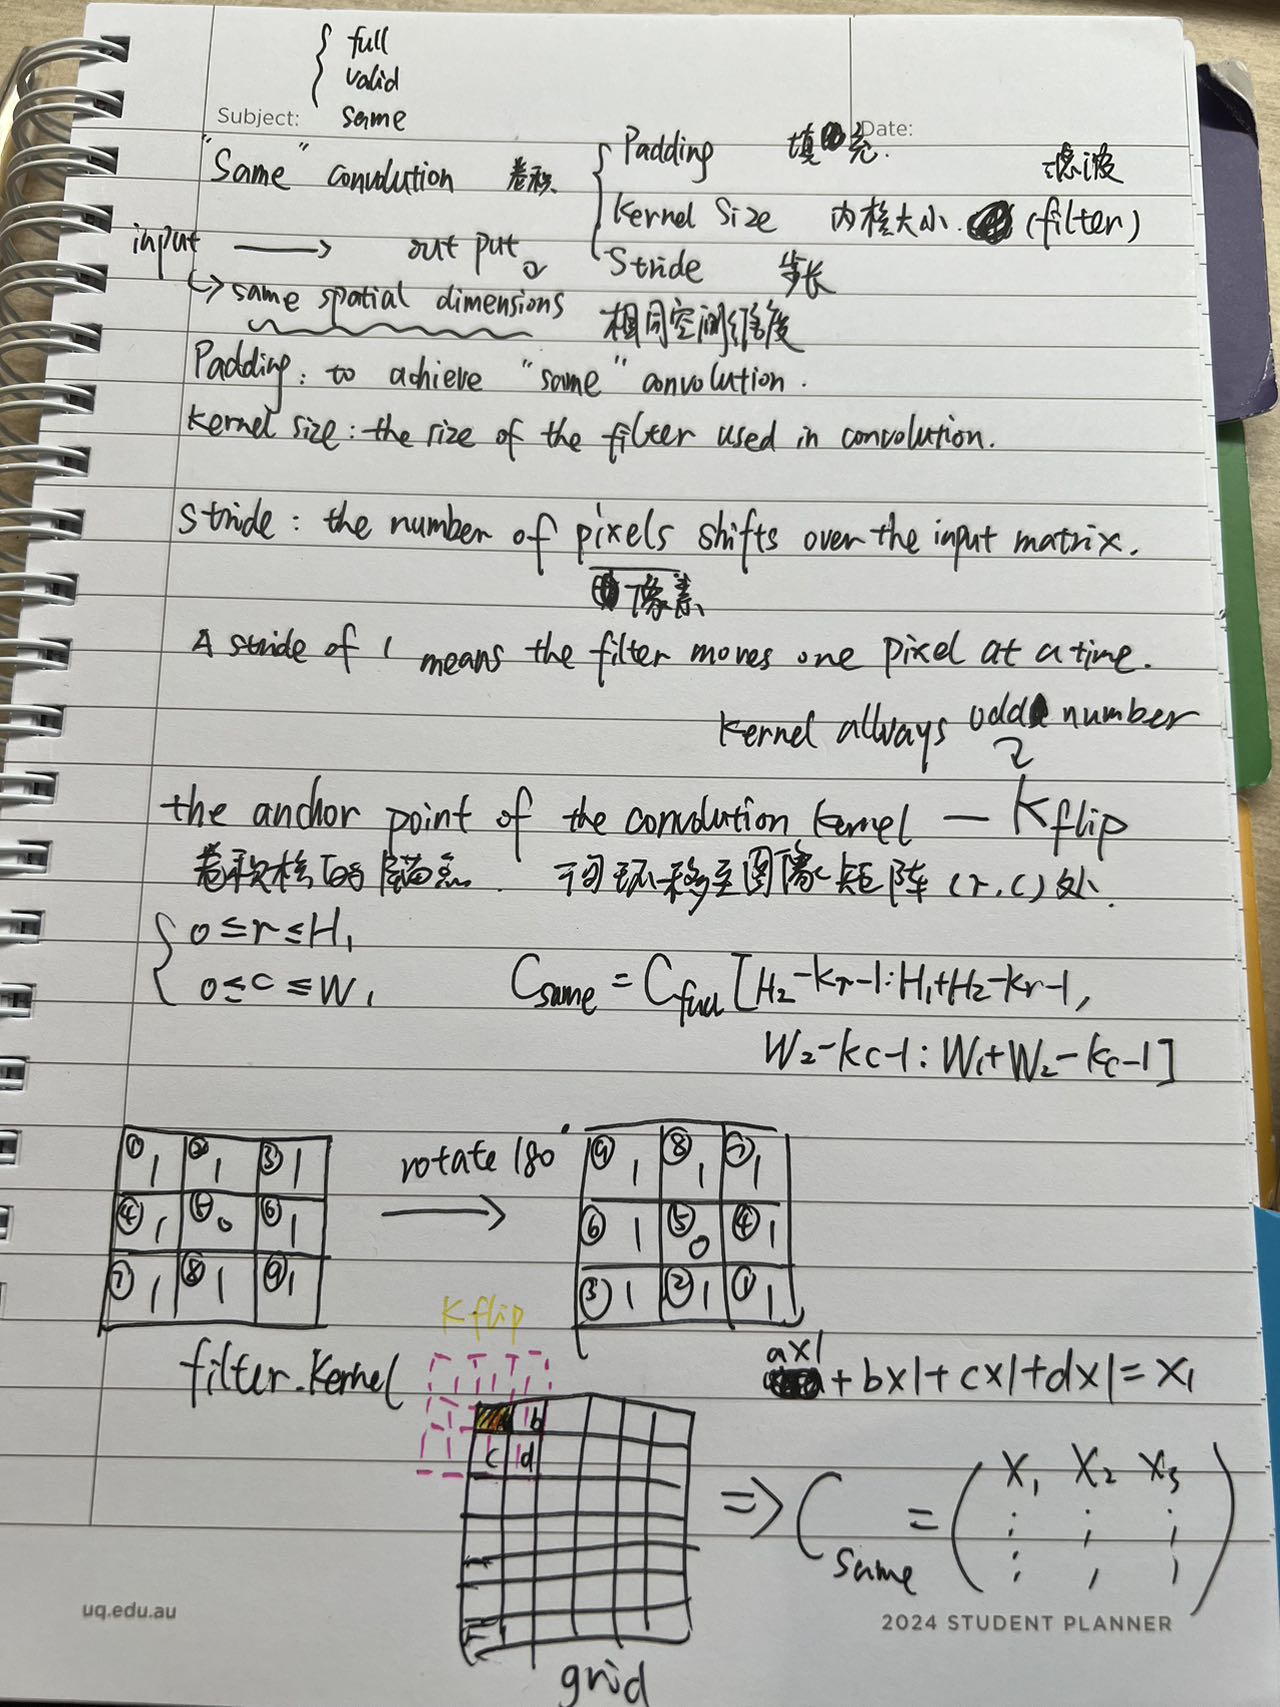 full
valid
Subject: same
Date:
"Same" convolution 卷积
Padding 填充.
Kernel Size 内核大小. (filter) 滤波
Stride 步长
input → out put
same spatial dimensions 相同空间维度
Padding: to achieve "same" convolution.
Kernel size: the size of the filter used in convolution.
Stride: the number of pixels shifts over the input matrix.
像素
A stride of 1 means the filter moves one pixel at a time.
Kernel allways odd number
the anchor point of the convolution kernel — K flip
卷积核的锚点. 可环移至图像矩阵 (r, c) 处.
0 ≤ r ≤ H₁
0 ≤ c ≤ W₁
Csame = Cfull [H₂-kr-1: H₁+H₂-kr-1,
W₂-kc-1: W₁+W₂-kc-1]
① 1 ② 1 ③ 1
④ 1 ⑤ 0 ⑥ 1
⑦ 1 ⑧ 1 ⑨ 1
rotate 180° →
⑨ 1 ⑧ 1 ⑦ 1
⑥ 1 ⑤ 0 ④ 1
③ 1 ② 1 ① 1
filter. Kernel
K flip
b
c d
grid
ax1 + bx1 + cx1 + dx1 = X₁
⇒ Csame = ( X₁ X₂ X₃ )
uq.edu.au
2024 STUDENT PLANNER